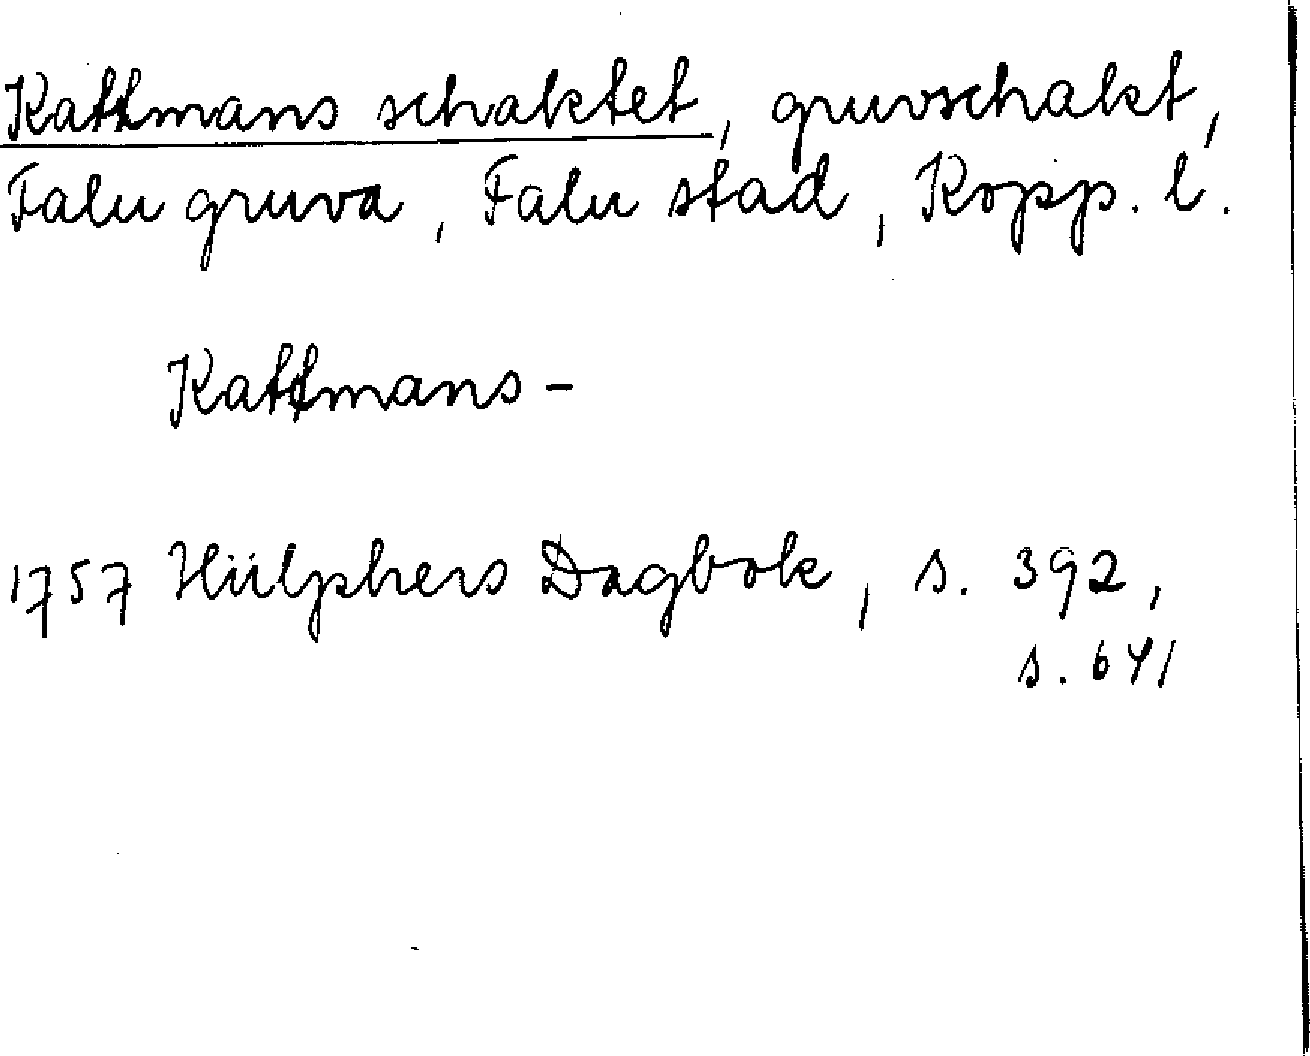 Kattmans schaktet, gruvschakt,
Falu gruva, Falu stad, Kopp. l.
Kattmans-
1757 Hülphers Dagbok, s. 392,
s. 641